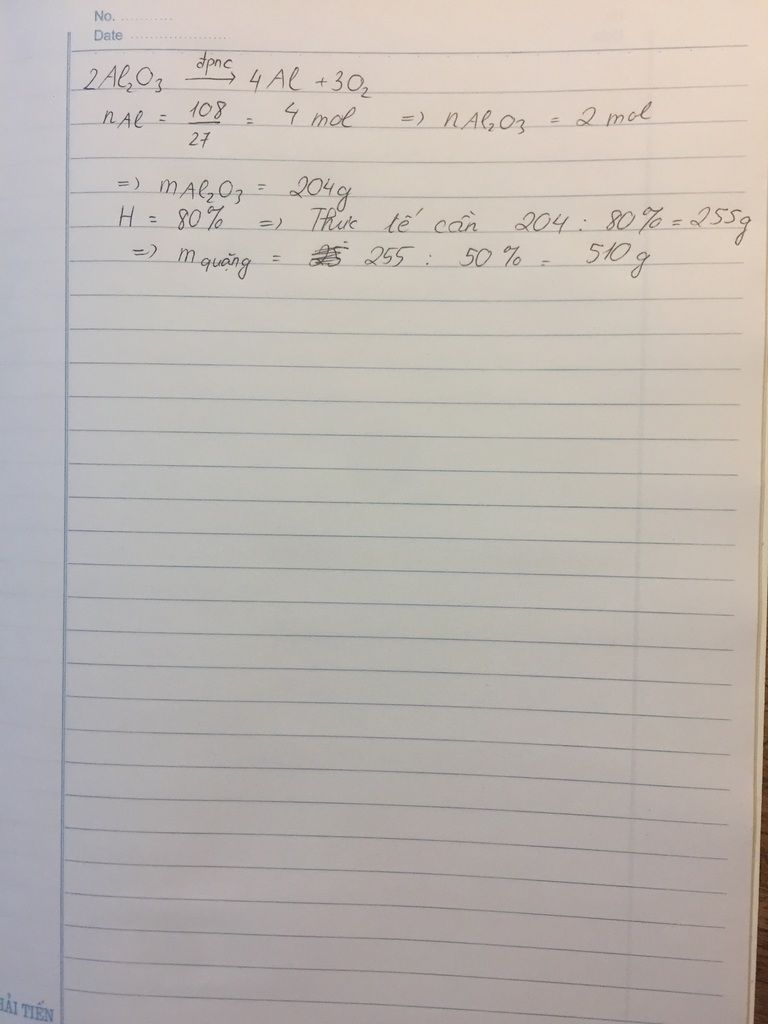 No. ...........
Date .....................
2Al₂O₃ đpnc→ 4Al + 3O₂
nAl = 108/27 = 4 mol => nAl₂O₃ = 2 mol
=> mAl₂O₃ = 204g
H = 80% => Thực tế cần 204 : 80% = 255g
=> m quặng = 255 : 50% = 510 g
HẢI TIẾN